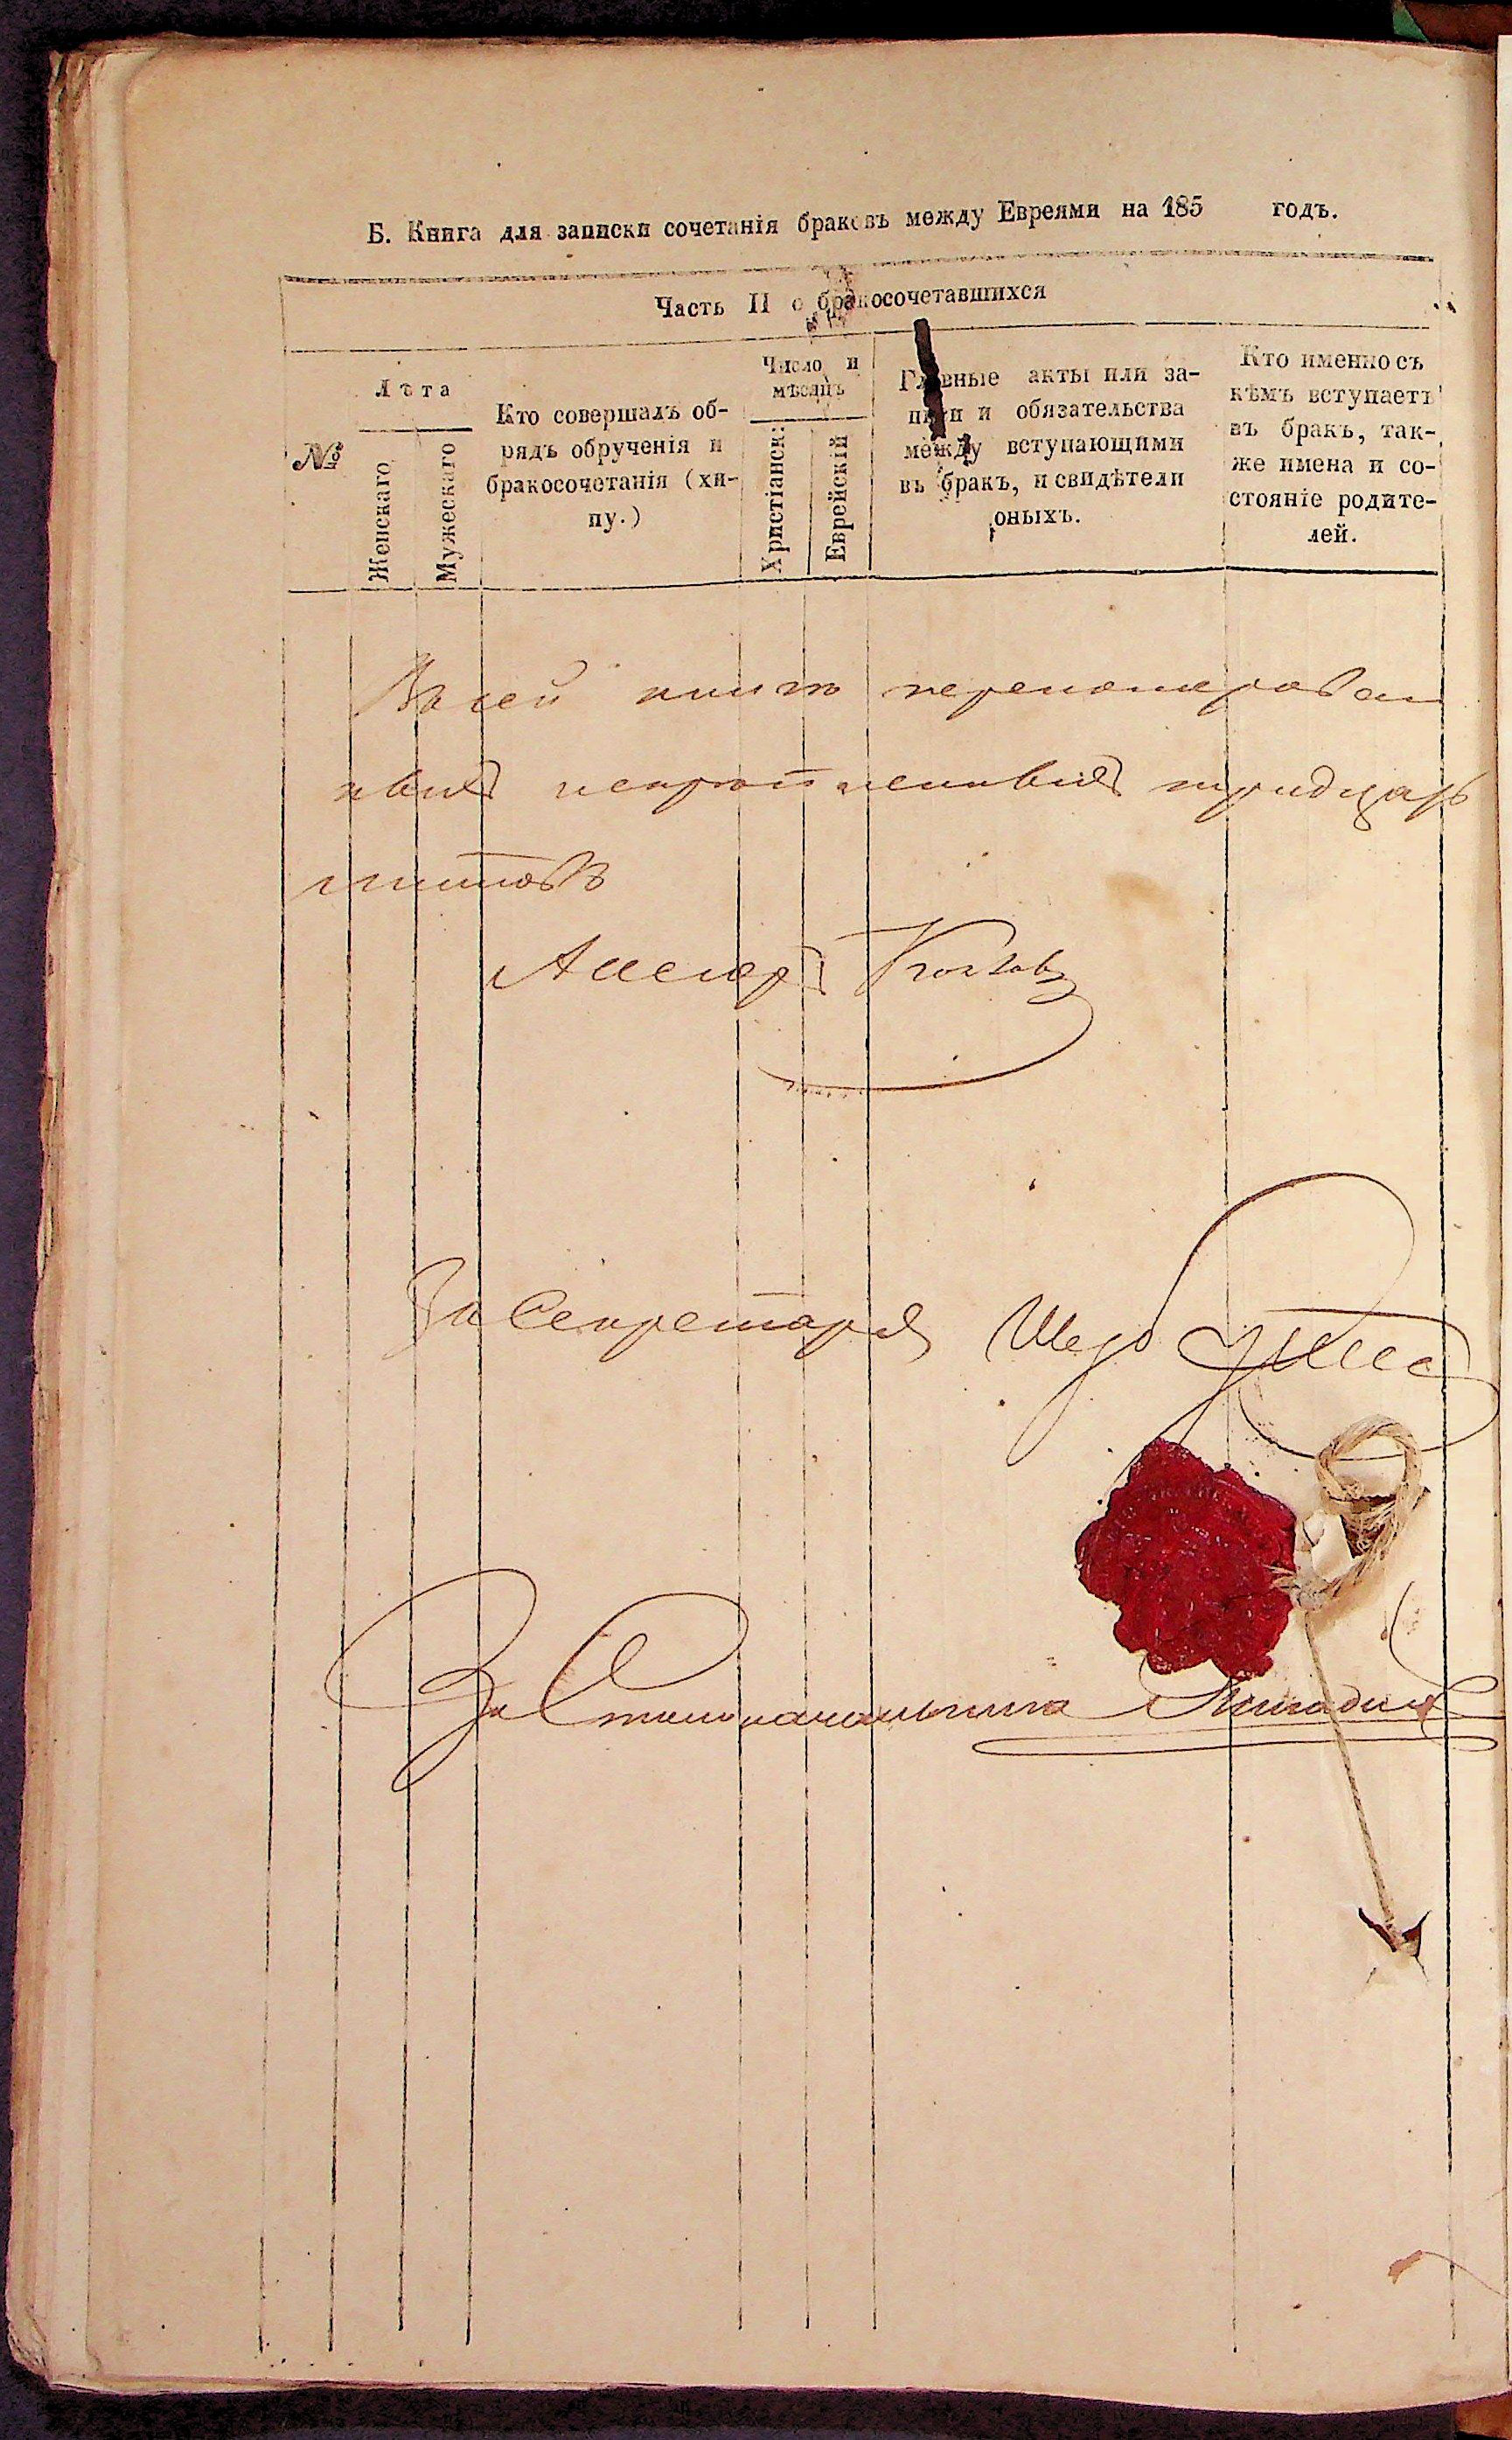 Б. Книга для записки сочетанія браковъ между Евреями на 185 годъ.
Часть II о бракосочетавшихся
№
Лѣта
Женскаго
Мужескаго
Кто совершалъ об-
рядъ обрученія и
бракосочетанія (хи-
пу.)
Число и
мѣсяцъ
Христіанск:
Еврейскій
Главные акты или за-
писи и обязательства
между вступающими
въ бракъ, и свидѣтели
оныхъ.
Кто именно съ
кѣмъ вступаетъ
въ бракъ, так-
же имена и со-
стояніе родите-
лей.
В сей книгѣ перенумерован
ныхъ и скрѣпленныхъ тридцать
листовъ
Ассесоръ
За Секретаря
За Столоначальника